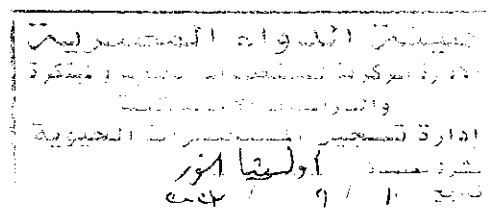 هيئة الدواء المصرية
الادارة المركزية للمستحضرات الحيوية و المبتكرة
والدراسات الاكلينيكية
إدارة تسجيل المستحضرات الحيوية
نشرة معتمدة
تاريخ ١٠ / ٩ /